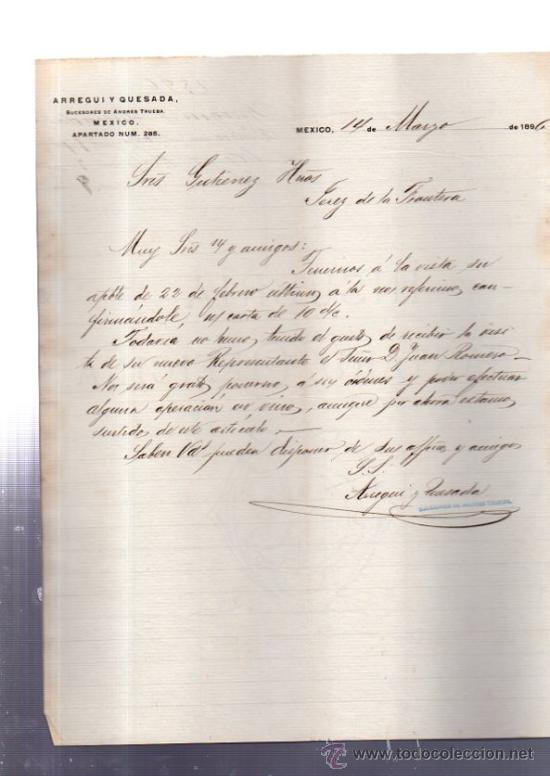 ARREGUI Y QUESADA,
SUCESORES DE ANDRES TRUEBA.
MEXICO.
APARTADO NUM. 286.
MEXICO, 14 de Marzo de 1896
Sres Gutierrez Hnos
Jerez de la Frontera
Muy Sres ntros y amigos:
Tenemos á la vista su
apble de 22 de febrero ultimo, á la nos referimos, con-
firmándole, nos carta de 10 d/o.
Todavia no hemos tenido el gusto de recibir la visi-
ta de su nuevo Representante el Señor D. Juan Romero.-
Nos será grato ponernos á sus órdenes y poder efectuar
alguna operación en vino, aunque por ahora estamos
surtidos de este artículo.-
Saben Vds pueden disponer de sus affmos y amigos
S.S.
Arregui y Quesada
SUCESORES DE ANDRES TRUEBA.
www.todocoleccion.net